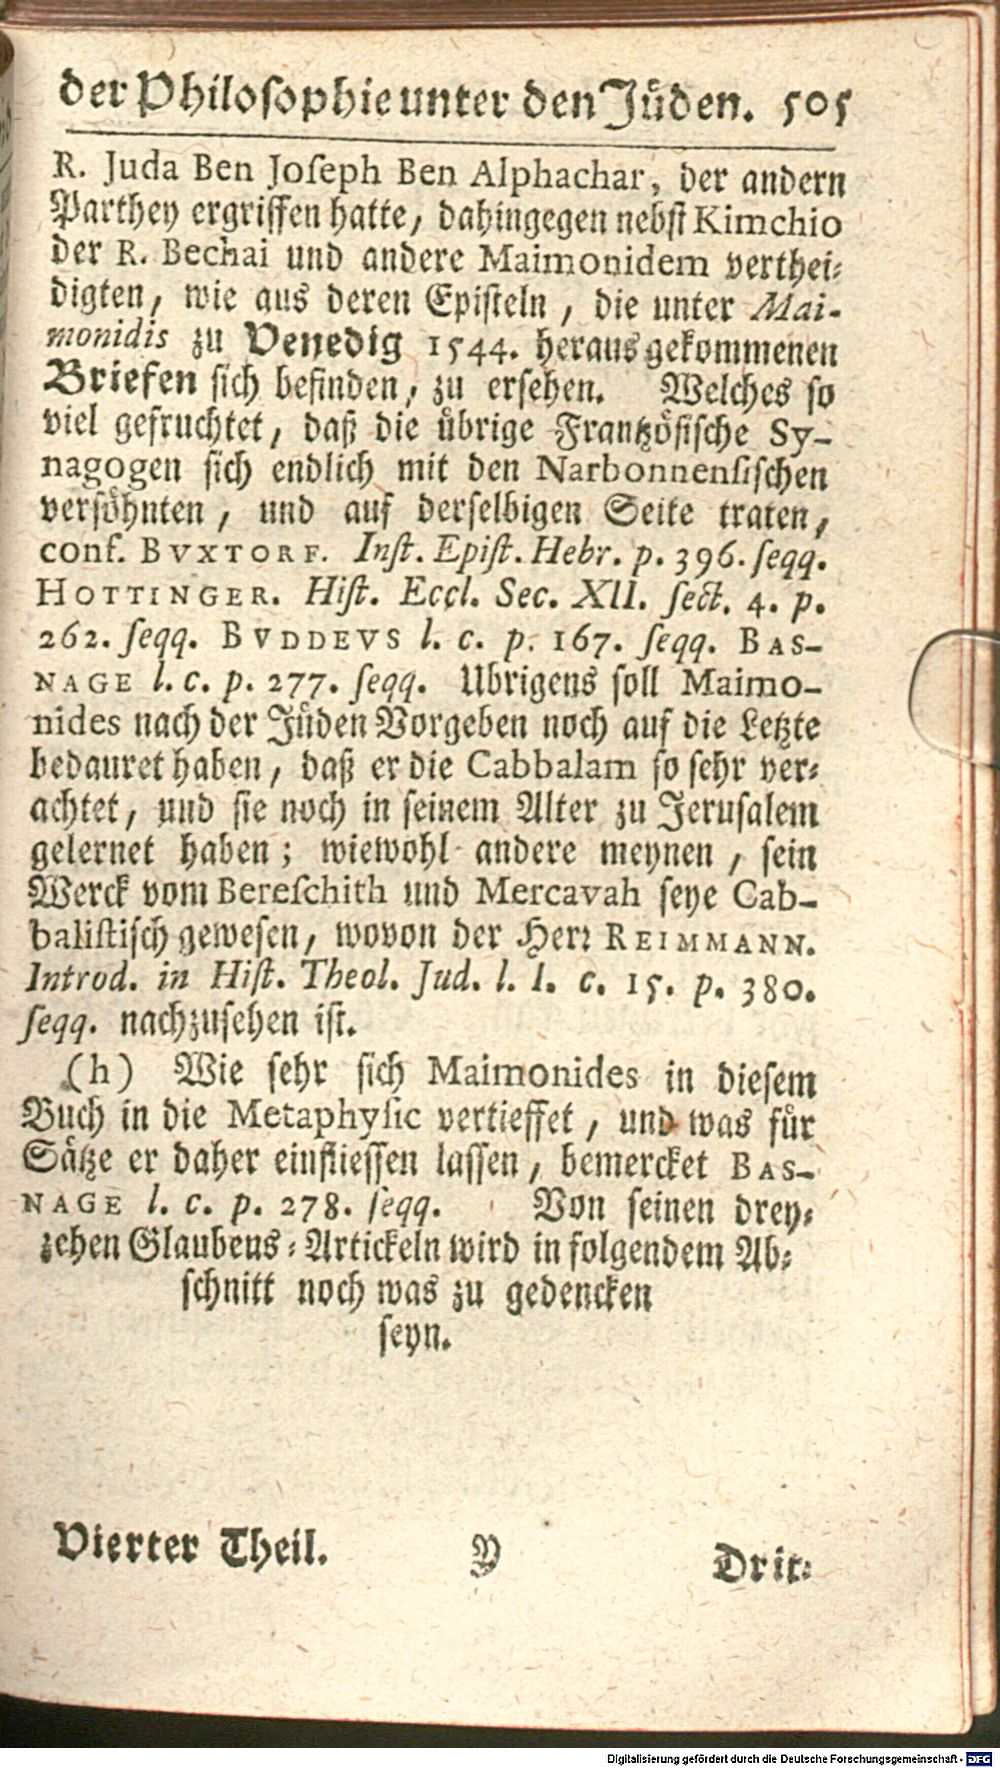 der Philosophie unter den Jüden. 505
R. Juda Ben Joseph Ben Alphachar, der andern
Parthey ergriffen hatte, dahingegen nebst Kimchio
der R. Bechai und andere Maimonidem verthei-
digten, wie aus deren Episteln, die unter Mai-
monidis zu Venedig 1544. heraus gekommenen
Briefen sich befinden, zu ersehen. Welches so
viel gefruchtet, daß die übrige Frantzösische Sy-
nagogen sich endlich mit den Narbonnensischen
versöhnten, und auf derselbigen Seite traten,
conf. BVXTORF. Inst. Epist. Hebr. p. 396. seqq.
HOTTINGER. Hist. Eccl. Sec. XII. sect. 4. p.
262. seqq. BVDDEVS l. c. p. 167. seqq. BAS-
NAGE l. c. p. 277. seqq. Ubrigens soll Maimo-
nides nach der Jüden Vorgeben noch auf die Letzte
bedauret haben, daß er die Cabbalam so sehr ver-
achtet, und sie noch in seinem Alter zu Jerusalem
gelernet haben; wiewohl andere meynen, sein
Werck vom Bereschith und Mercavah seye Cab-
balistisch gewesen, wovon der Herr REIMMANN.
Introd. in Hist. Theol. Jud. l. I. c. 15. p. 380.
seqq. nachzusehen ist.
(h) Wie sehr sich Maimonides in diesem
Buch in die Metaphysic vertieffet, und was für
Sätze er daher einfliessen lassen, bemercket BAS-
NAGE l. c. p. 278. seqq. Von seinen drey-
zehen Glaubens-Artickeln wird in folgendem Ab-
schnitt noch was zu gedencken
seyn.
Vierter Theil. Y Drit-
Digitalisierung gefördert durch die Deutsche Forschungsgemeinschaft - DFG